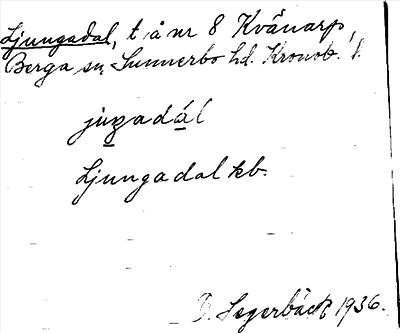 Ljungadal, t. å nr 8 Kvänarp,
Berga sn, Sunnerbo hd. Kronob. l.
juŋadál
Ljungadal kb.
Segerbäck 1936.